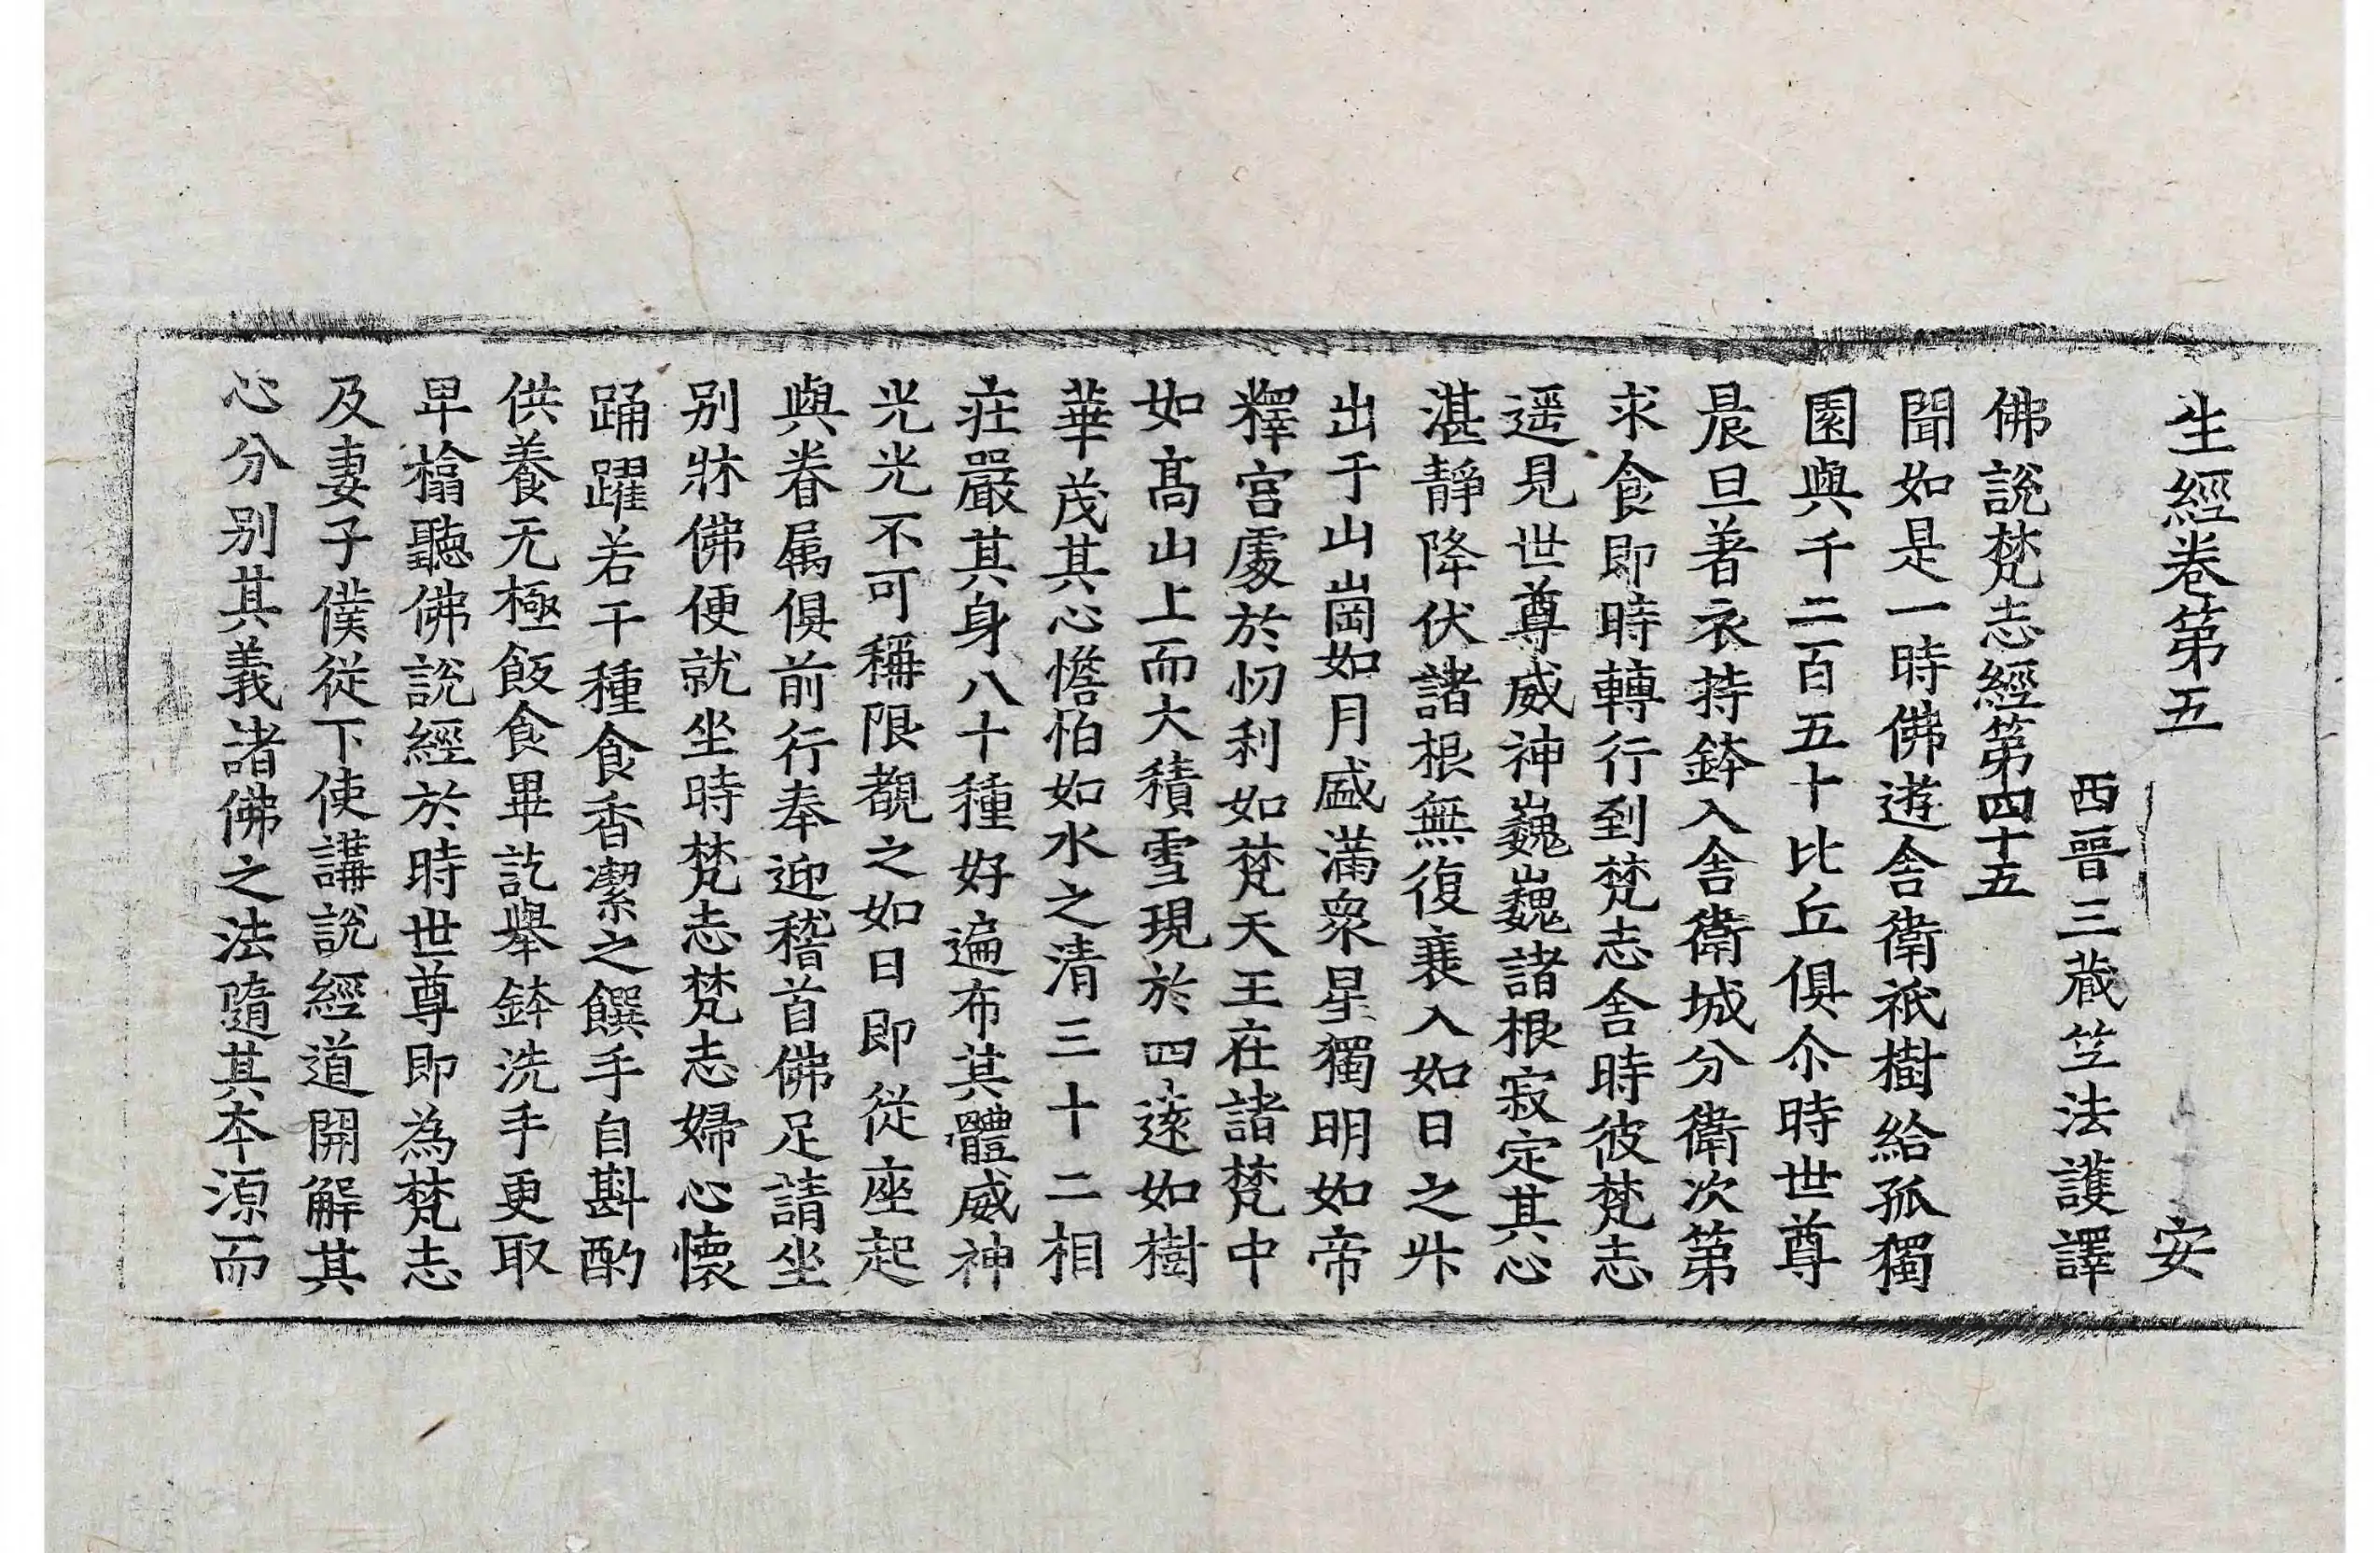 生經卷第五 安
西晉三藏竺法護譯
佛說梵志經第四十五
聞如是一時佛遊舍衛祇樹給孤獨
園與千二百五十比丘俱尒時世尊
晨旦著衣持鉢入舍衛城分衛次第
求食即時轉行到梵志舍時彼梵志
遥見世尊威神巍巍諸根寂定其心
湛靜降伏諸根無復衰入如日之昇
出于山崗如月盛滿衆星獨明如帝
釋宮處於忉利如梵天王在諸梵中
如高山上而大積雪現於四遠如樹
華茂其心憺怕如水之清三十二相
莊嚴其身八十種好遍布其體威神
光光不可稱限覩之如日即從座起
與眷属俱前行奉迎稽首佛足請坐
别牀佛便就坐時梵志梵志婦心懷
踊躍若干種食香潔之饌手自斟酌
供養无極飯食畢訖舉鉢洗手更取
卑榻聽佛說經於時世尊即為梵志
及妻子僕從下使講說經道開解其
心分别其義諸佛之法隨其本源而